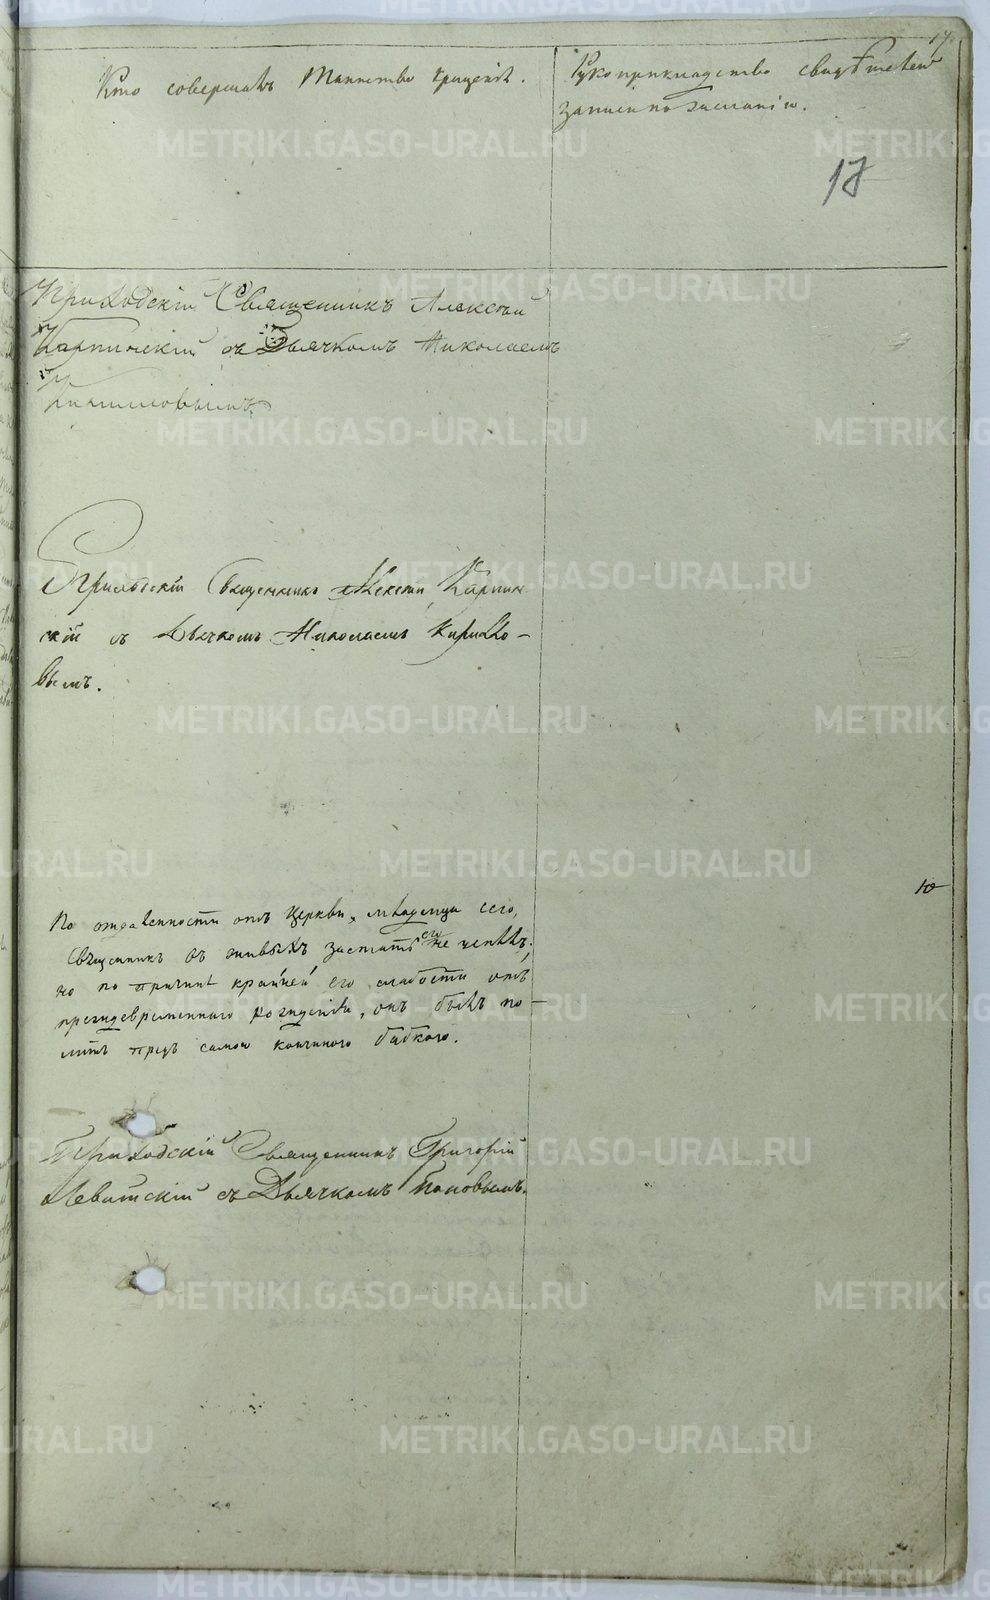 17.
Кто совершалъ Таинство крещенія.
Рукоприкладство свидѣтелей
записи по желанію.
17
Приходскій Священникъ Алексѣй
Карпинскій съ Дьячкомъ Николаемъ
Кирилловымъ.
Приходскій Священникъ Алексѣй Карпин
скій съ Дьячкомъ Николаемъ Кирилло-
вымъ.
По отдаленности отъ Церкви, младенца сего,
Священникъ въ живыхъ застать его не успѣлъ:
но по причинѣ крайней его слабости отъ
преждевременнаго рожденія, онъ былъ по-
предъ самою кончиною бабкою.
Приходскій Священникъ Григорій
Левитскій съ Дьячкомъ Поповымъ.
METRIKI.GASO-URAL.RU